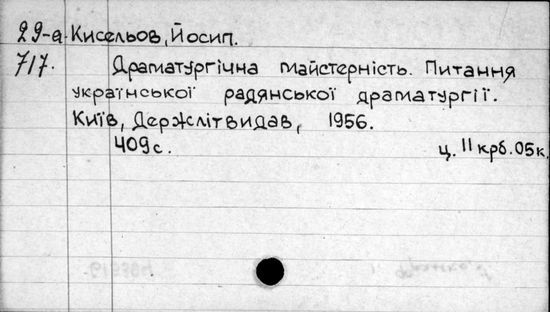 29-а Кисельов, Йосип.
717. Драматургічна майстерність. Питання
української радянської драматургії.
Київ, Держлітвидав, 1956.
409 с. ц. 11 крб. 05 к.